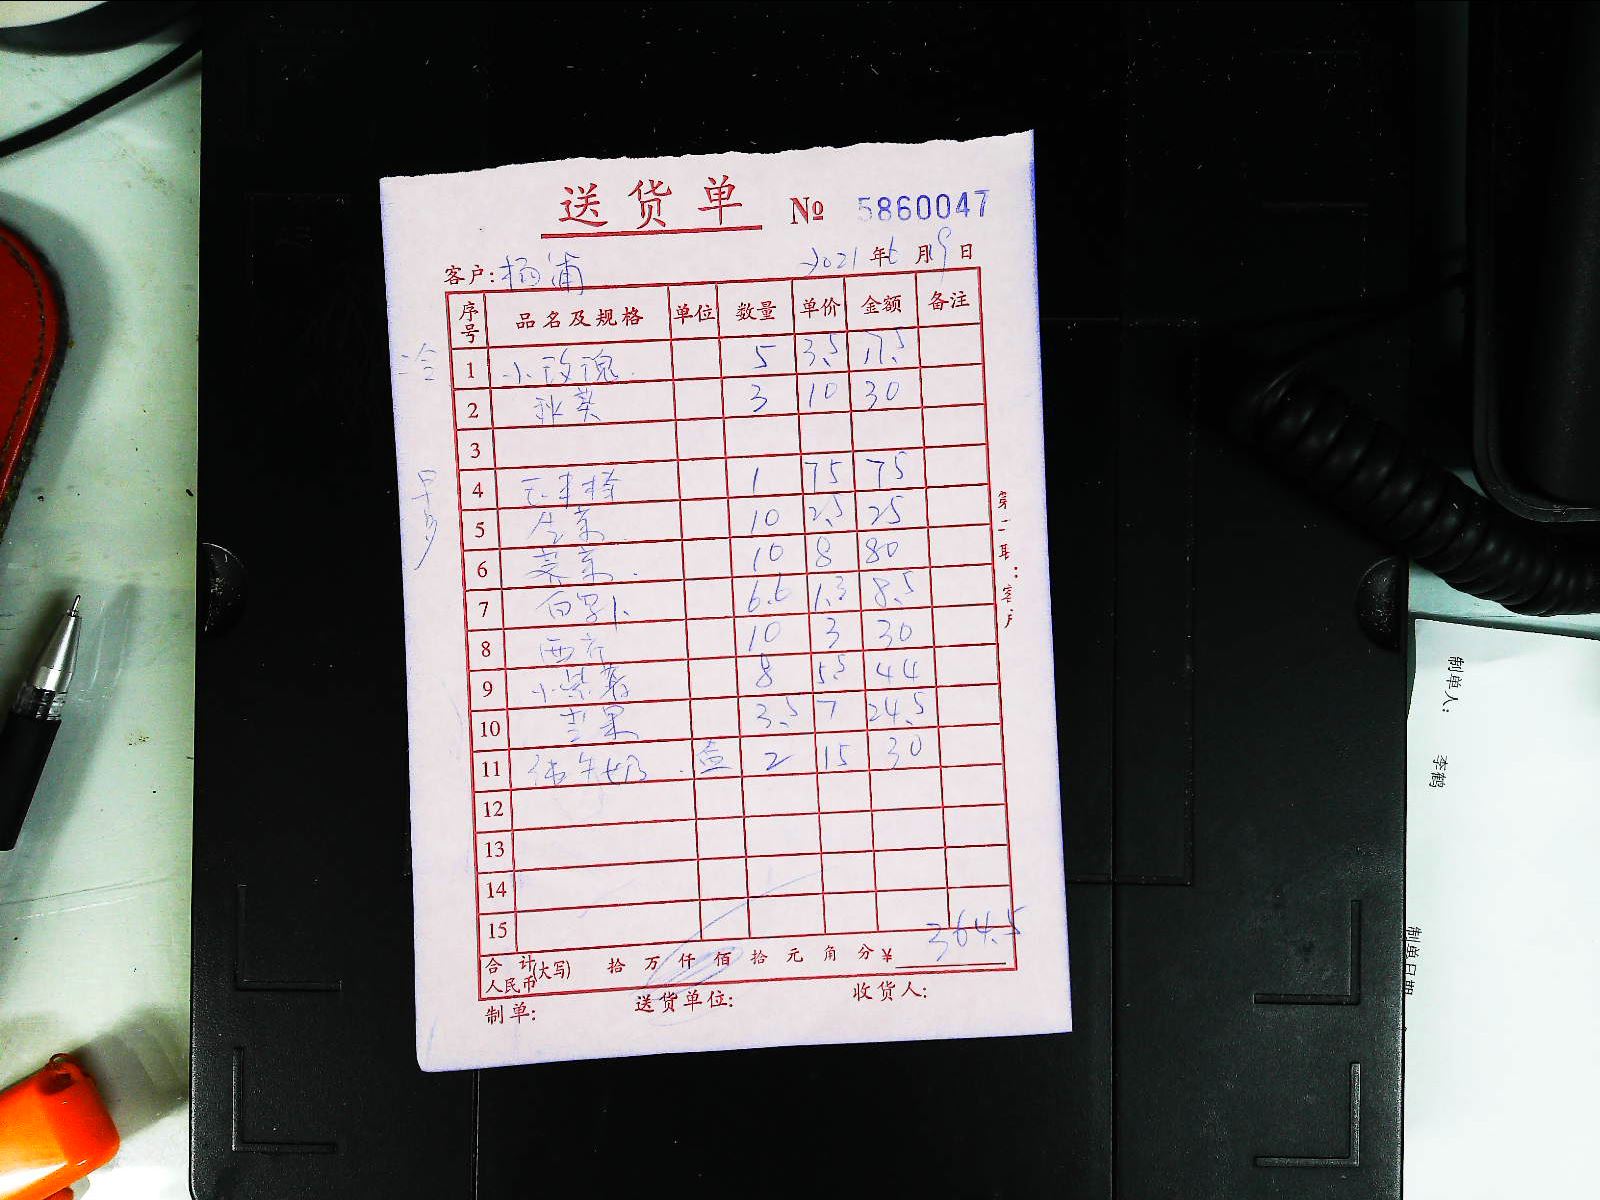 送货单 № 5860047
客户: 杨浦 2021年6月19日
序号 品名及规格 单位 数量 单价 金额 备注
冷
1 小玫瑰 5 3.5 17.5
2 秋葵 3 10 30
3
早
4 75 75
1
5 生菜 10 2.5 25
6 10 8 80
7 白萝卜 6.6 1.3 8.5
8 西芹 10 3 30
9 小紫薯 8 5.5 44
10 芒果 3.5 7 24.5
11 纯牛奶 盒 2 15 30
12
13
14
15
合计人民币(大写) 拾 万 仟 佰 拾 元 角 分 ¥ 364.5
制单: 送货单位: 收货人:
第二联:客户
制单人: 李鹤
制单日期